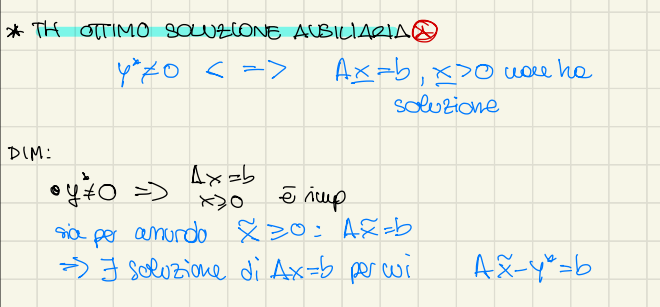 * TH OTTIMO SOLUZIONE AUSILIARIA *
y*≠0 <=> Ax=b, x>0 non ha
soluzione
DIM:
• y*≠0 => Ax=b
x≥0 è imp
sia per assurdo x̃≥0: Ax̃=b
=> ∃ soluzione di Ax=b per cui Ax̃-y*=b